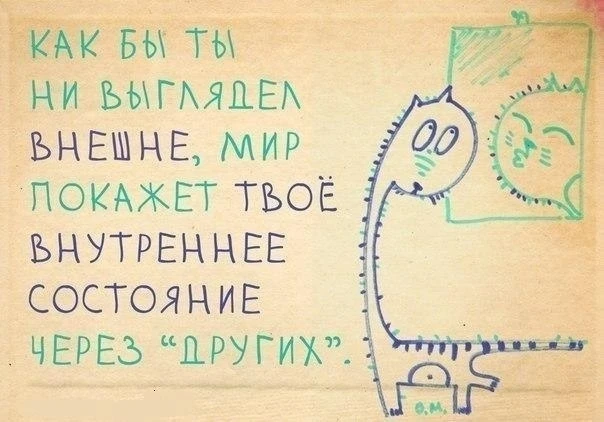 КАК БЫ ТЫ
НИ ВЫГЛЯДЕЛ
ВНЕШНЕ, МИР
ПОКАЖЕТ ТВОЁ
ВНУТРЕННЕЕ
СОСТОЯНИЕ
ЧЕРЕЗ “ДРУГИХ”.
О.М.